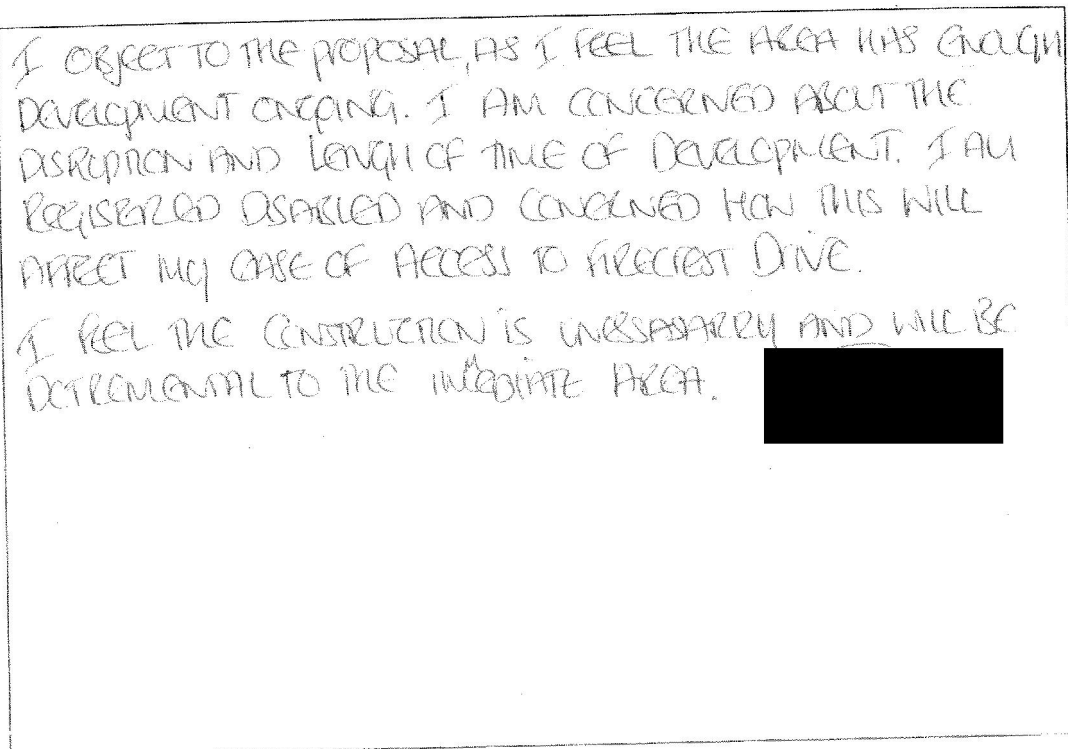 I OBJECT TO THE PROPOSAL, AS I FEEL THE AREA HAS ENOUGH
DEVELOPMENT ONGOING. I AM CONCERNED ABOUT THE
DISRUPTION AND LENGTH OF TIME OF DEVELOPMENT. I AM
REGISTERED DISABLED AND CONCERNED HOW THIS WILL
AFFECT MY EASE OF ACCESS TO FIRECREST DRIVE.
I FEEL THE CONSTRUCTION IS UNESSASARRY AND WILL BE
DETREMENTAL TO THE IMMEDIATE AREA.